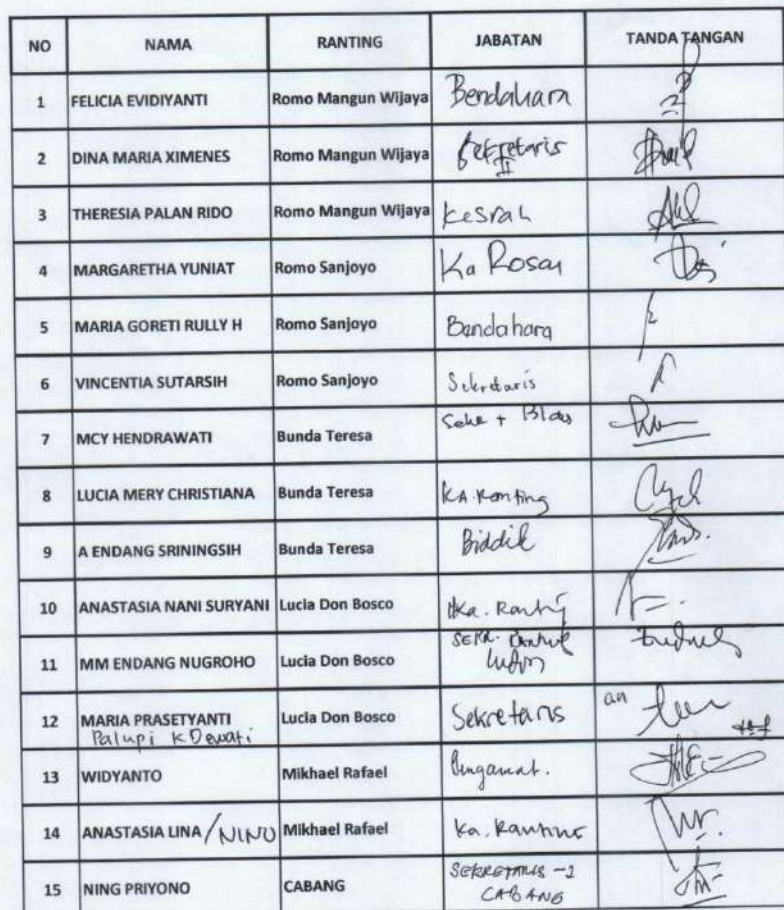 NO NAMA RANTING JABATAN TANDA TANGAN
1 FELICIA EVIDIYANTI Romo Mangun Wijaya Bendahara
2 DINA MARIA XIMENES Romo Mangun Wijaya Sekretaris
II
3 THERESIA PALAN RIDO Romo Mangun Wijaya Kesrah
4 MARGARETHA YUNIAT Romo Sanjoyo Ka
5 MARIA GORETI RULLY H Romo Sanjoyo Bendahara
6 VINCENTIA SUTARSIH Romo Sanjoyo Sekretaris
7 MCY HENDRAWATI Bunda Teresa
8 LUCIA MERY CHRISTIANA Bunda Teresa KA. Ranting
9 A ENDANG SRININGSIH Bunda Teresa Biddik
10 ANASTASIA NANI SURYANI Lucia Don Bosco
11 MM ENDANG NUGROHO Lucia Don Bosco
12 MARIA PRASETYANTI Lucia Don Bosco Sekretaris an
Palupi K Dewati
13 WIDYANTO Mikhael Rafael Pengamat.
14 ANASTASIA LINA / NINO Mikhael Rafael Ka. Ranting
15 NING PRIYONO CABANG SEKRETARIS -1
CABANG